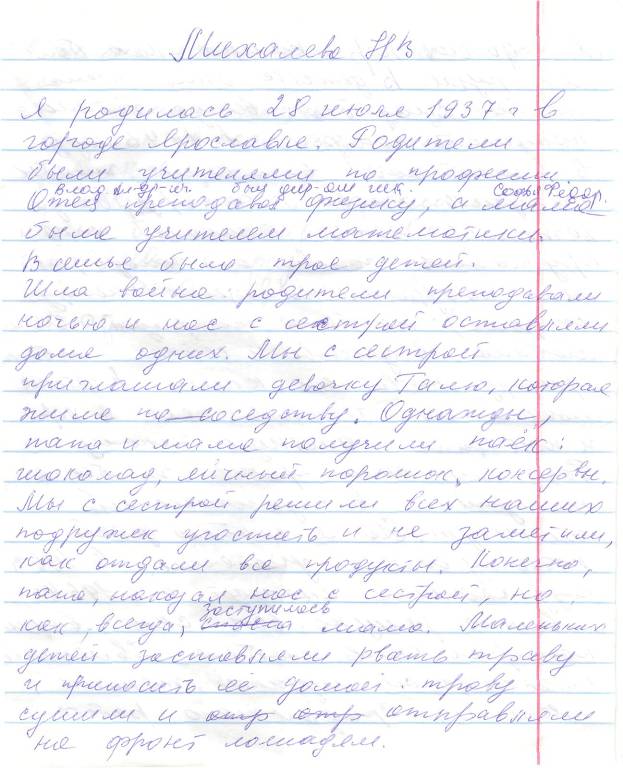 Михалева НВ
Я родилась 28 июля 1937 г в
городе Ярославле. Родители
были учителями по профессии
Влад. был дир-ом шк. Софья Фёдор.
Отец преподавал физику, а мама
была учителем математики.
В семье было трое детей.
Шла война: родители преподавали
ночью и нас с сестрой оставляли
дома одних. Мы с сестрой
приглашали девочку Галю, которая
жила по соседству. Однажды,
папа и мама получили паёк:
шоколад, яичный порошок, консервы.
Мы с сестрой решили всех наших
подружек угостить и не заметили,
как отдали все продукты. Конечно,
папа, наказал нас с сестрой, но
заступилась
как, всегда, мама. Маленьких
детей заставляли рвать траву
и приносить её домой: траву
сушили и отр отр отправляли
на фронт лошадям.